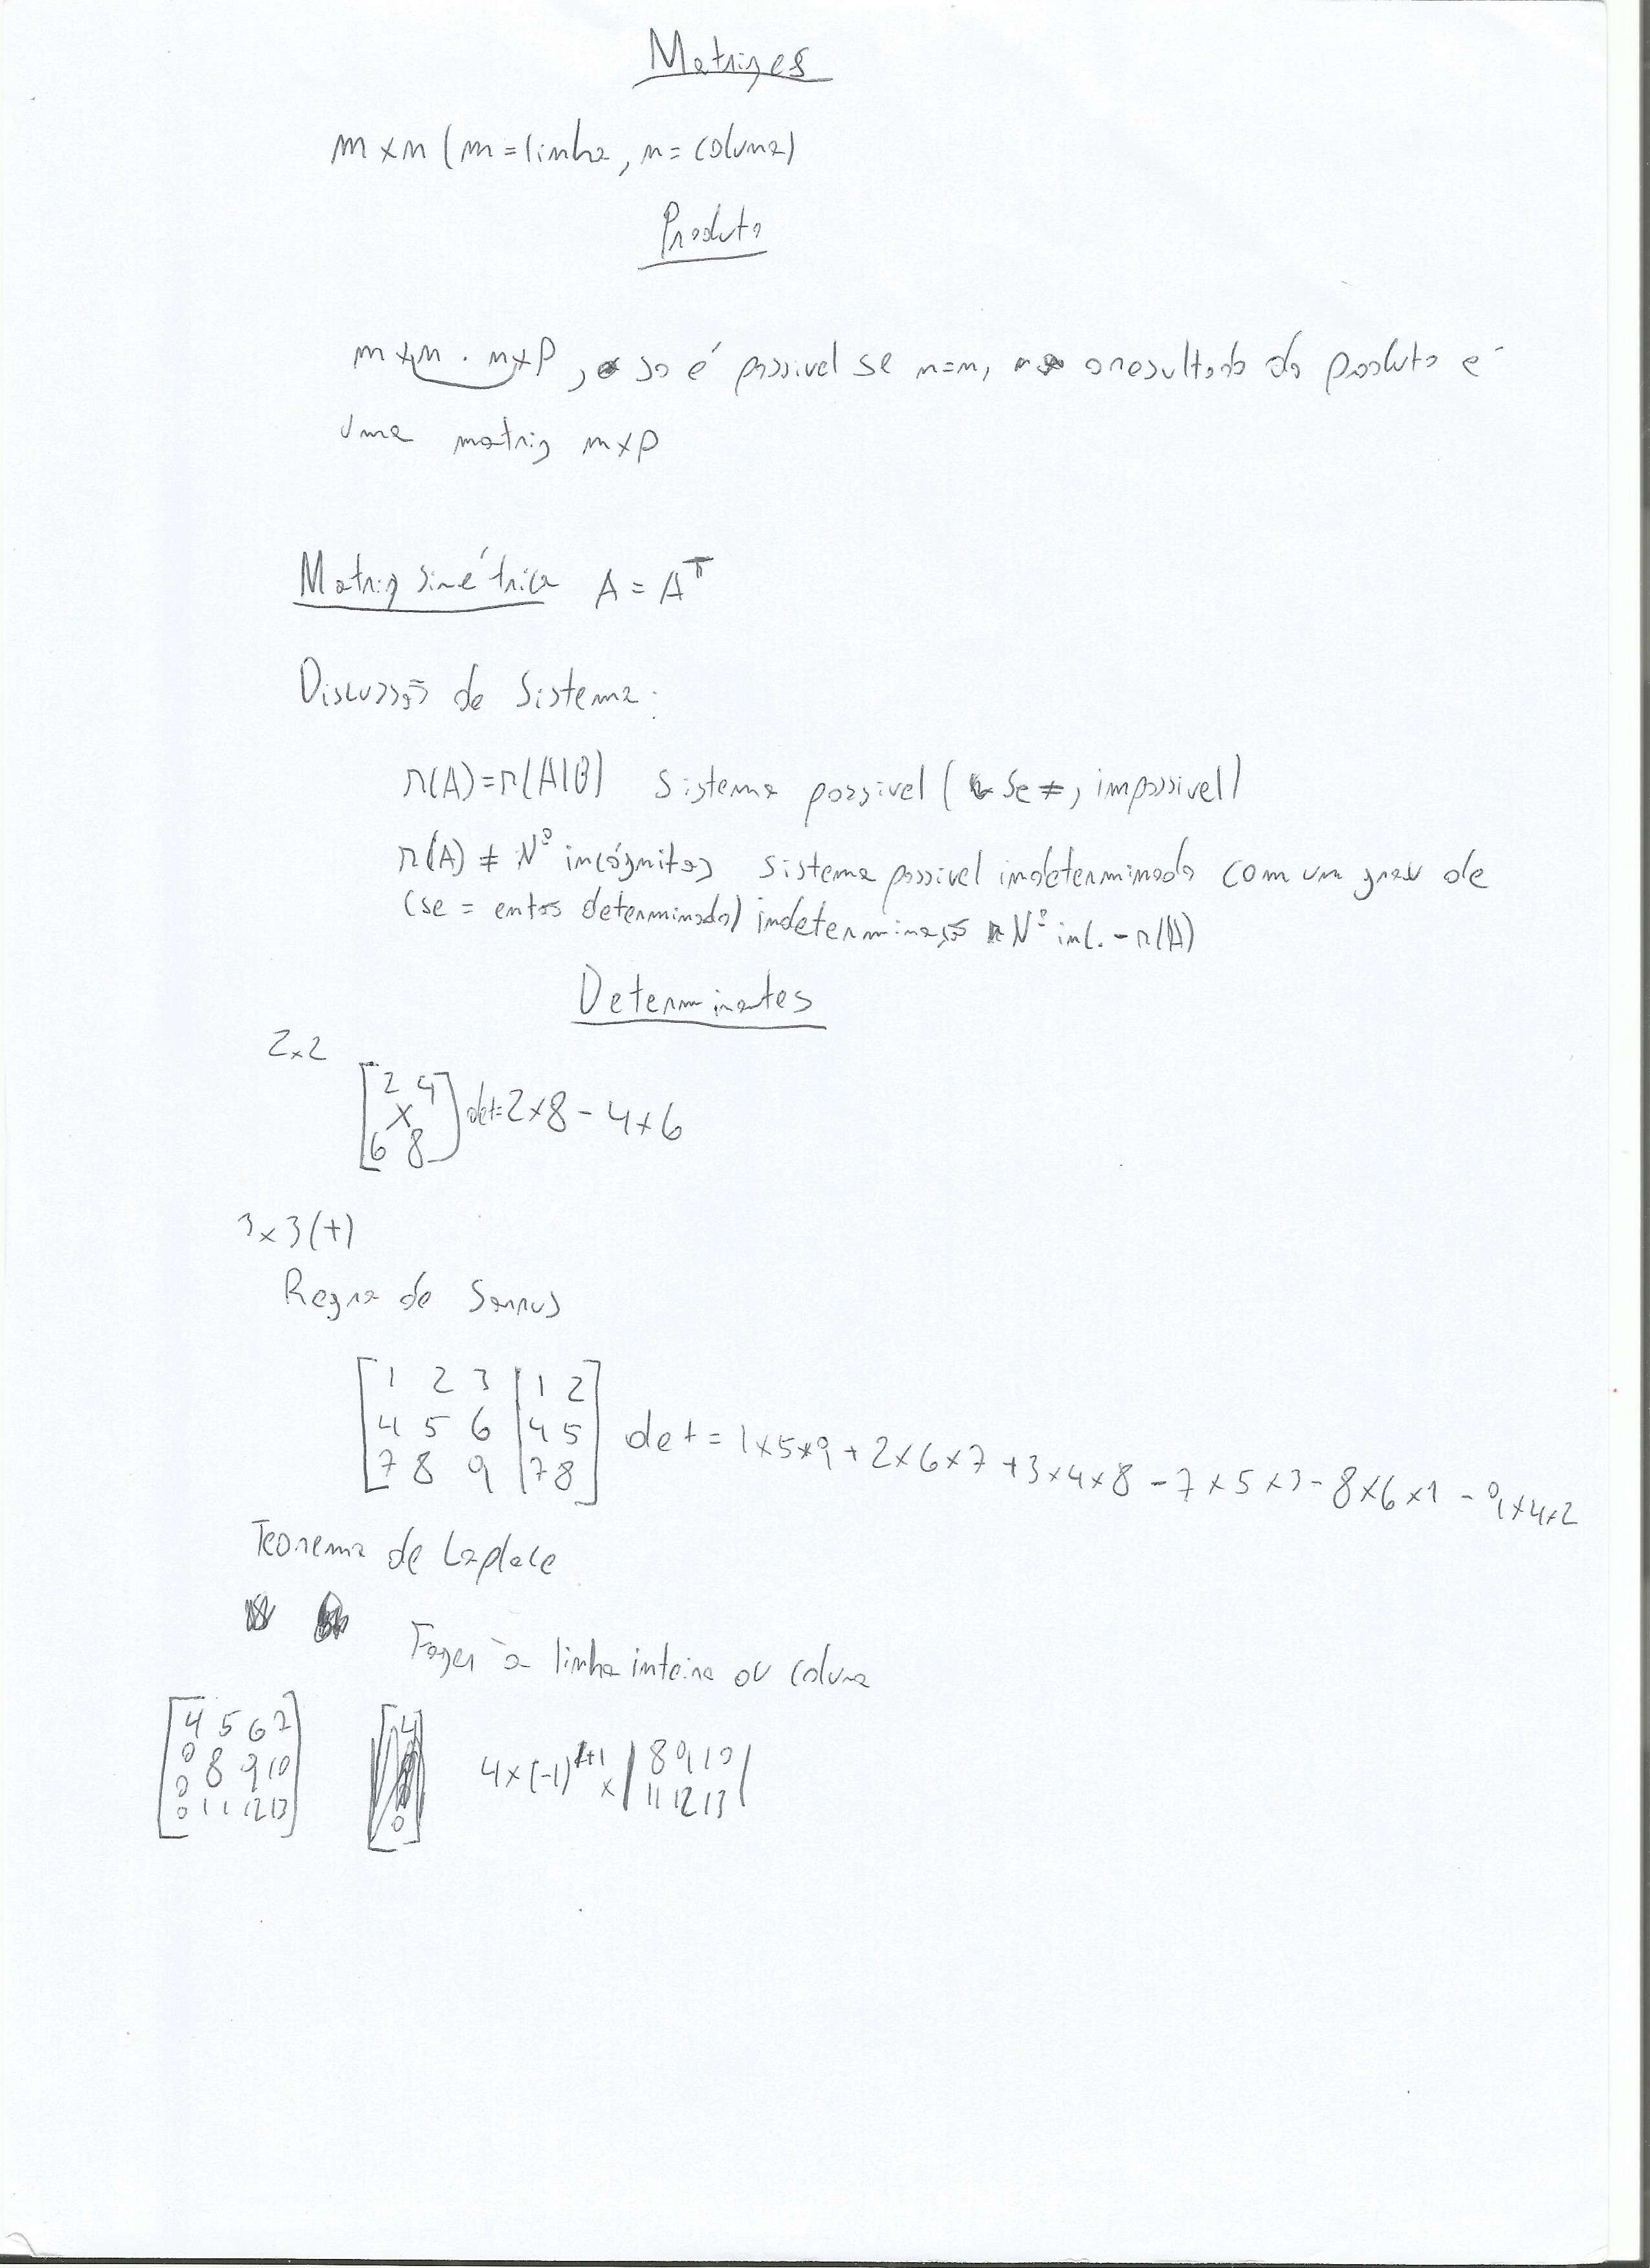 Matrizes
m x n (m = linha, n = coluna)
Produto
m x n . n x p, só é possivel se n=n, o resultado do produto é
uma matriz m x p
Matriz simétrica A = A^T
Discussão de Sistema:
r(A) = r(A|B) Sistema possivel (Se ≠, impossivel)
r(A) ≠ Nº incógnitas Sistema possivel indeterminado com um grau de
(se = entos determinado) indeterminação Nº inc. - r(A)
Determinantes
2x2
[2 4] det = 2x8 - 4x6
[6 8]
3x3 (+)
Regra de Sarrus
[1 2 3 | 1 2]
[4 5 6 | 4 5] det = 1x5x9 + 2x6x7 + 3x4x8 - 7x5x3 - 8x6x1 - 9x4x2
[7 8 9 | 7 8]
Teorema de Laplace
Fazer à linha inteira ou coluna
[4 5 6 7]
[0 8 9 10] 4 x (-1)^1+1 x |8 9 10|
[0]
[0 11 12 13] |11 12 13|